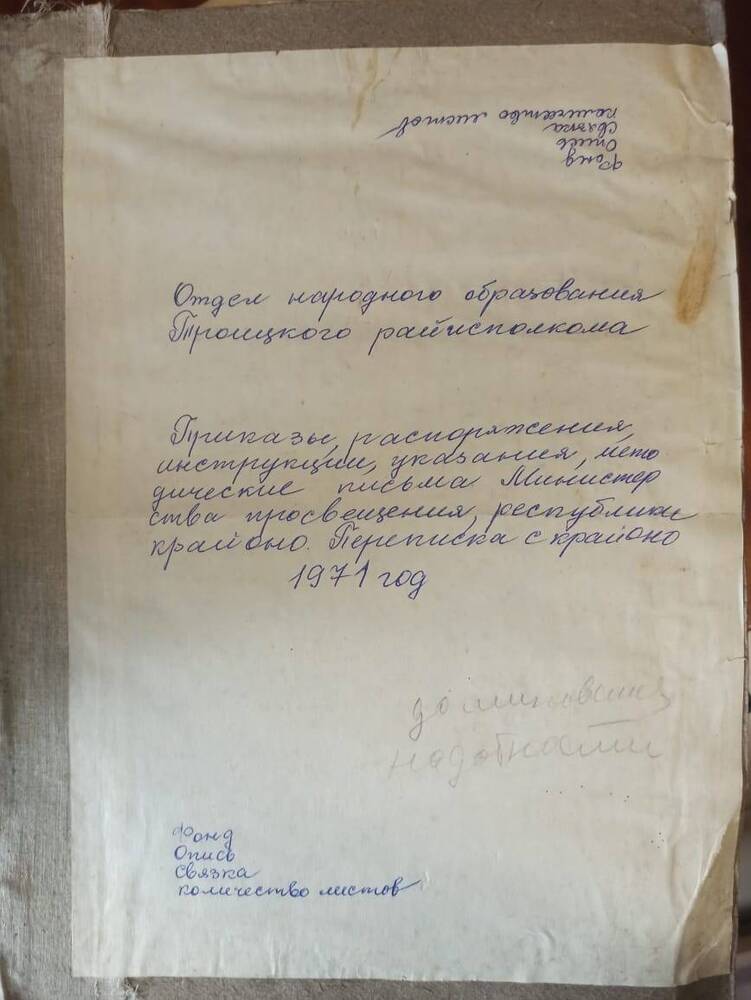 Фонд
Опись
связка
количество листов
Отдел народного образования
Троицкого райисполкома
Приказы, распоряжения,
инструкции, указания, мето
дические письма Министер
ства просвещения, республики
крайоно. Переписка с крайоно
1971 год
до минования
надобности
Фонд
Опись
связка
количество листов